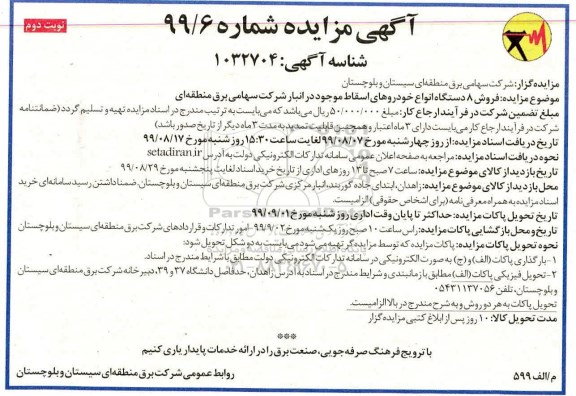 نوبت دوم
آگهی مزایده شماره ۹۹/۶
شناسه آگهی: ۱۰۳۲۷۰۴
مزایده گزار: شرکت سهامی برق منطقه‌ای سیستان وبلوچستان
موضوع مزایده: فروش ۸ دستگاه انواع خودروهای اسقاط موجود در انبار شرکت سهامی برق منطقه‌ای
مبلغ تضمین شرکت در فرآیند ارجاع کار: مبلغ ۵۰/۰۰۰/۰۰۰ ریال می‌باشد که می‌بایست به ترتیب مندرج در اسناد مزایده تهیه و تسلیم گردد (ضمانتنامه
شرکت در فرآیند ارجاع کار می‌بایست دارای ۳ ماه اعتبار و همچنین قابلیت تمدید به مدت ۳ ماه دیگر از تاریخ صدور باشد)
تاریخ دریافت اسناد مزایده: از روز چهارشنبه مورخ ۹۹/۰۸/۰۷ لغایت ساعت ۱۵:۳۰ روز شنبه مورخ ۹۹/۰۸/۱۷
نحوه دریافت اسناد مزایده: مراجعه به صفحه اعلان عمومی سامانه تدارکات الکترونیکی دولت به آدرس setadiran.ir
تاریخ بازدید از کالای موضوع مزایده: ساعت ۷ صبح تا ۱۳ روزهای اداری از تاریخ خرید اسناد لغایت پنجشنبه مورخ ۹۹/۰۸/۲۹
محل بازدید از کالای موضوع مزایده: زاهدان، ابتدای جاده گوربند، انبار مرکزی شرکت برق منطقه‌ای سیستان وبلوچستان. ضمنا داشتن رسید سامانه‌ای خرید
اسناد مزایده به همراه معرفی نامه (برای اشخاص حقوقی) الزامیست.
تاریخ تحویل پاکات مزایده: حداکثر تا پایان وقت اداری روز شنبه مورخ ۹۹/۰۹/۰۱
تاریخ و محل بازگشایی پاکات مزایده: راس ساعت ۱۰ صبح روز یکشنبه مورخ ۹۹/۹/۰۲ - امور تدارکات و قراردادهای شرکت برق منطقه‌ای سیستان وبلوچستان
نحوه تحویل پاکات مزایده: پاکات مزایده که توسط مزایده گر تهیه می‌شود می‌بایست به دو شکل تحویل شود:
۱- بارگذاری پاکات (الف) و (ج) به صورت الکترونیکی در سامانه تدارکات الکترونیکی دولت مطابق با شرایط مندرج در اسناد.
۲- تحویل فیزیکی پاکات (الف) مطابق بازمانبندی و شرایط مندرج در اسناد به آدرس زاهدان، حدفاصل دانشگاه ۳۷ و ۳۹، دبیرخانه شرکت برق منطقه‌ای سیستان
وبلوچستان، تلفن ۰۵۴۳۱۱۳۷۰۵۶
تحویل پاکات به هر دو روش و به شرح مندرج در بالا الزامیست.
مدت تحویل کالا: ۱۰ روز پس از ابلاغ کتبی مزایده گزار
***
با ترویج فرهنگ صرفه جویی، صنعت برق را در ارائه خدمات پایدار یاری کنیم
م/الف ۵۹۹
روابط عمومی شرکت برق منطقه‌ای سیستان وبلوچستان